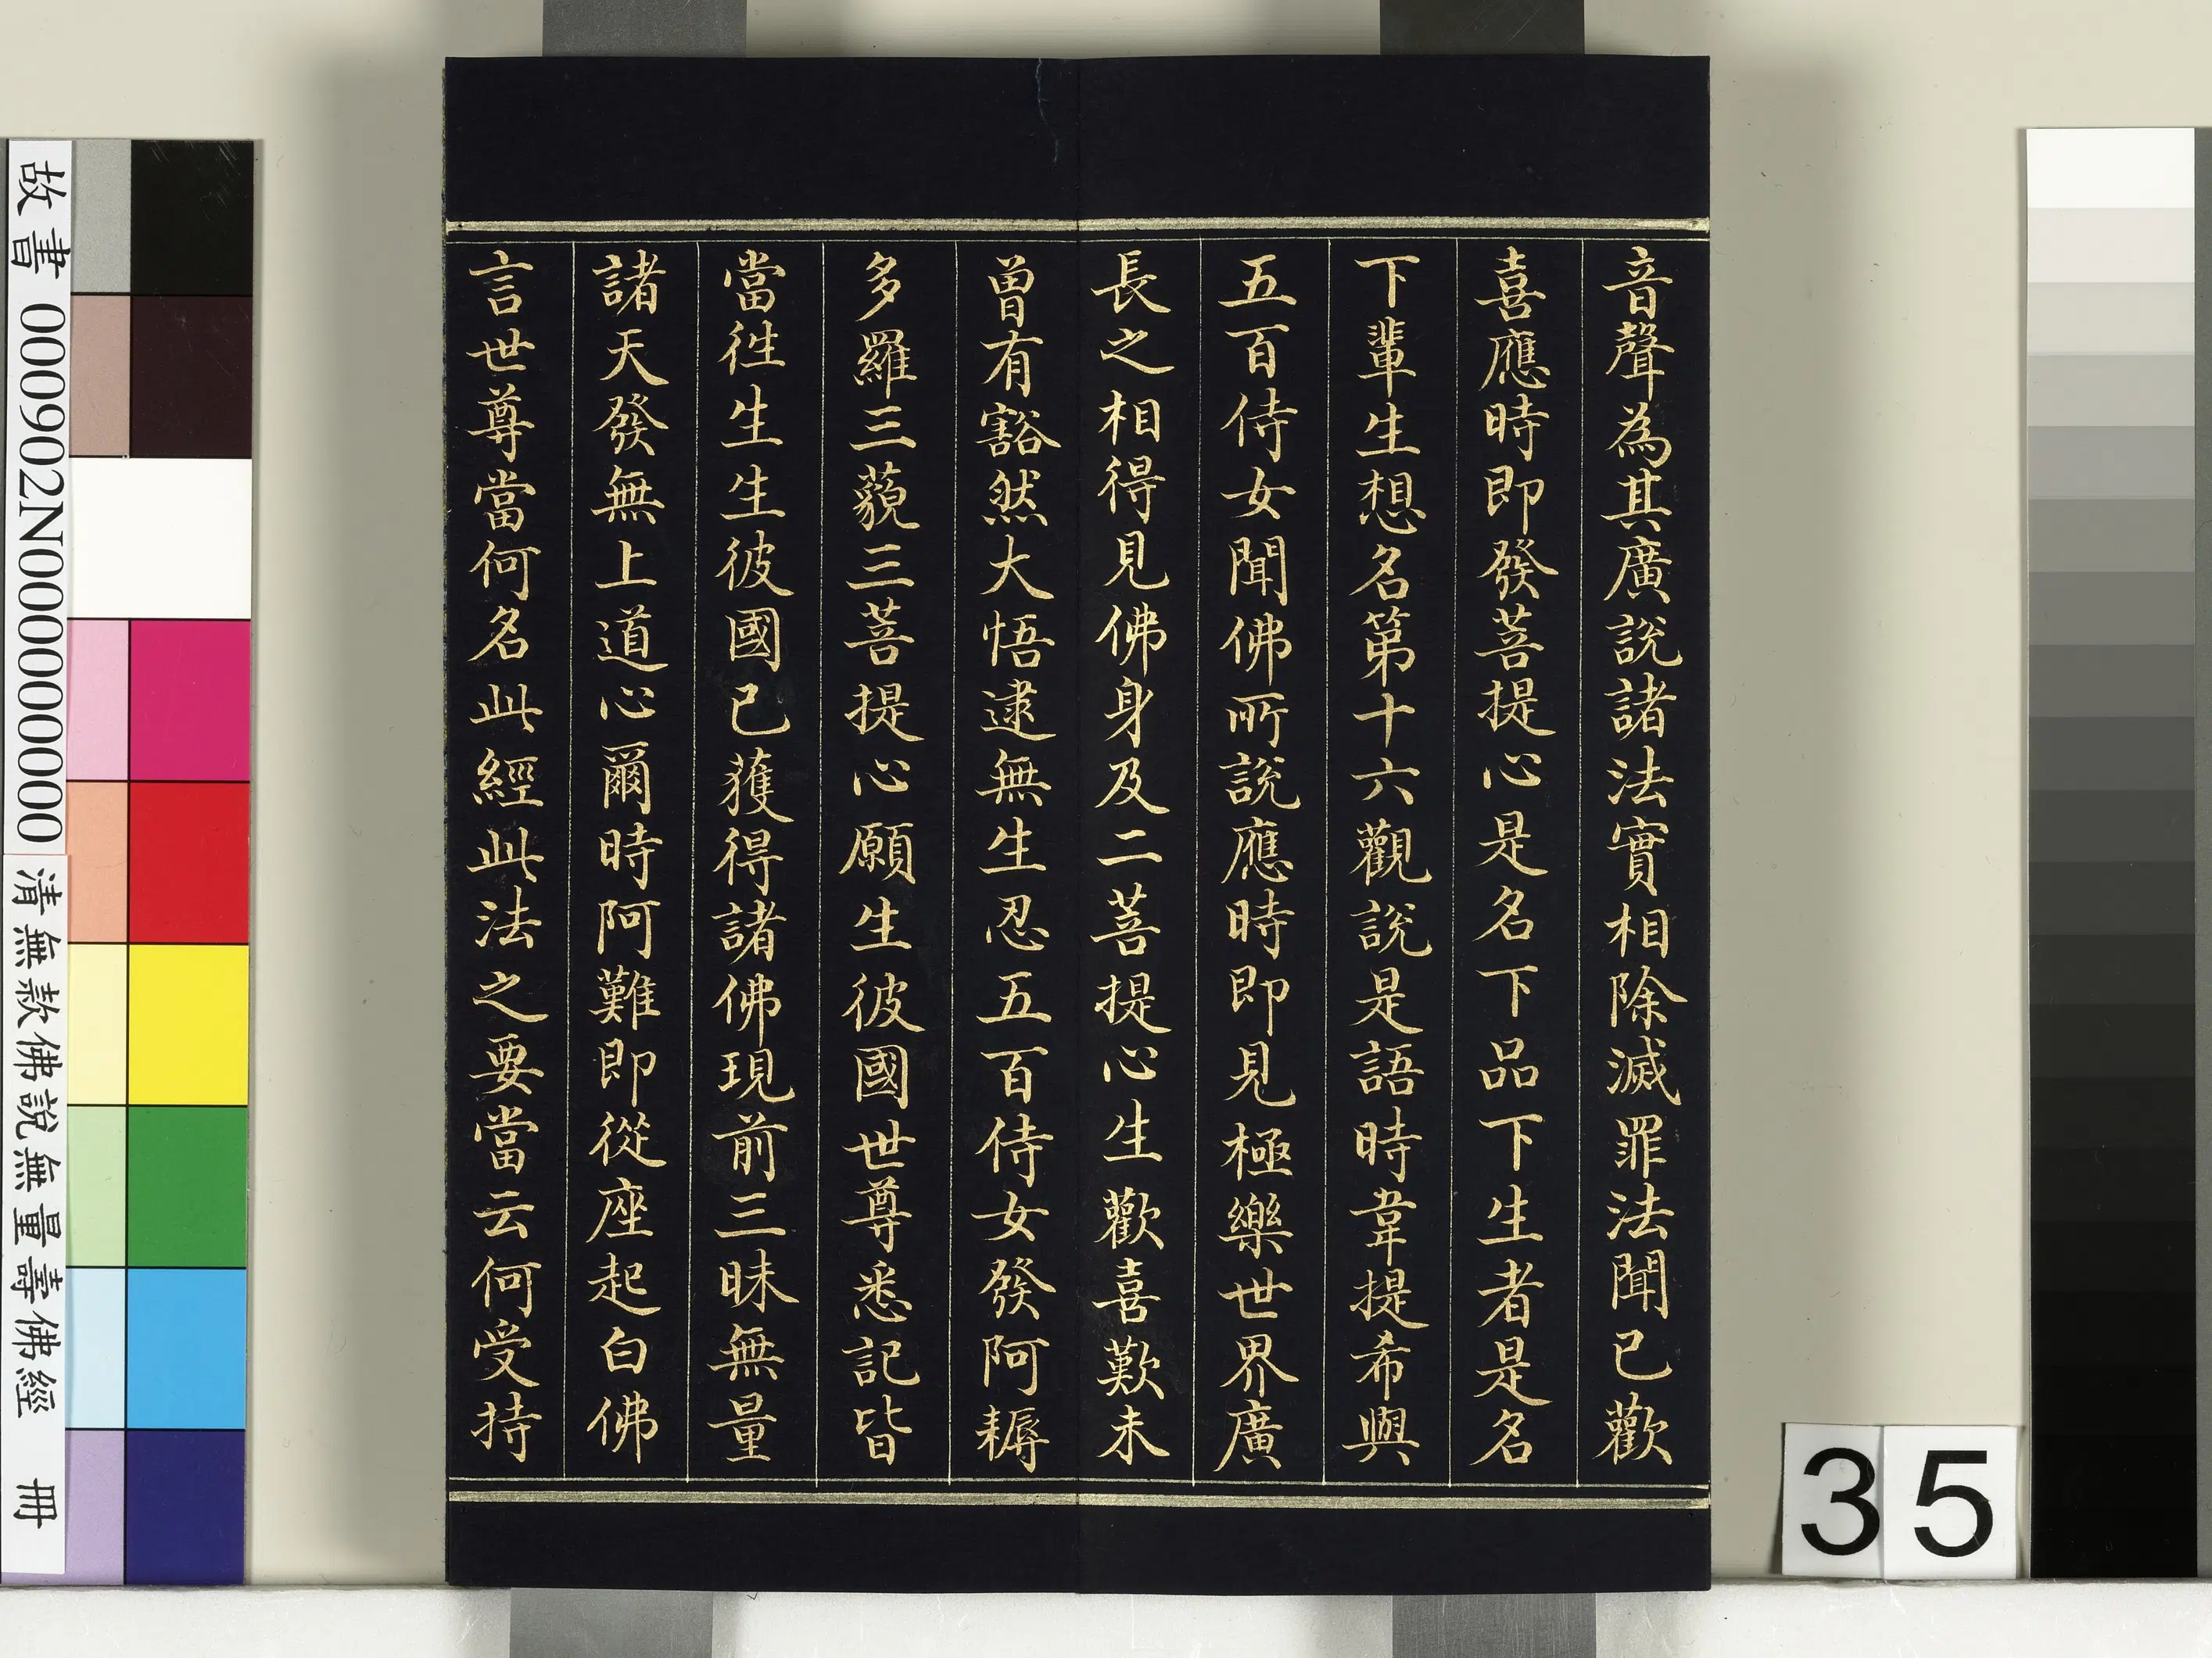 音聲為其廣說諸法實相除滅罪法聞已歡
喜應時即發菩提心是名下品下生者是名
下輩生想名第十六觀說是語時韋提希與
五百侍女聞佛所說應時即見極樂世界廣
長之相得見佛身及二菩提心生歡喜歎未
曾有豁然大悟逮無生忍五百侍女發阿耨
多羅三藐三菩提心願生彼國世尊悉記皆
當徃生生彼國已獲得諸佛現前三昧無量
諸天發無上道心爾時阿難即從座起白佛
言世尊當何名此經此法之要當云何受持
故書 000902N000000000
清無款佛說無量壽佛經 冊
35